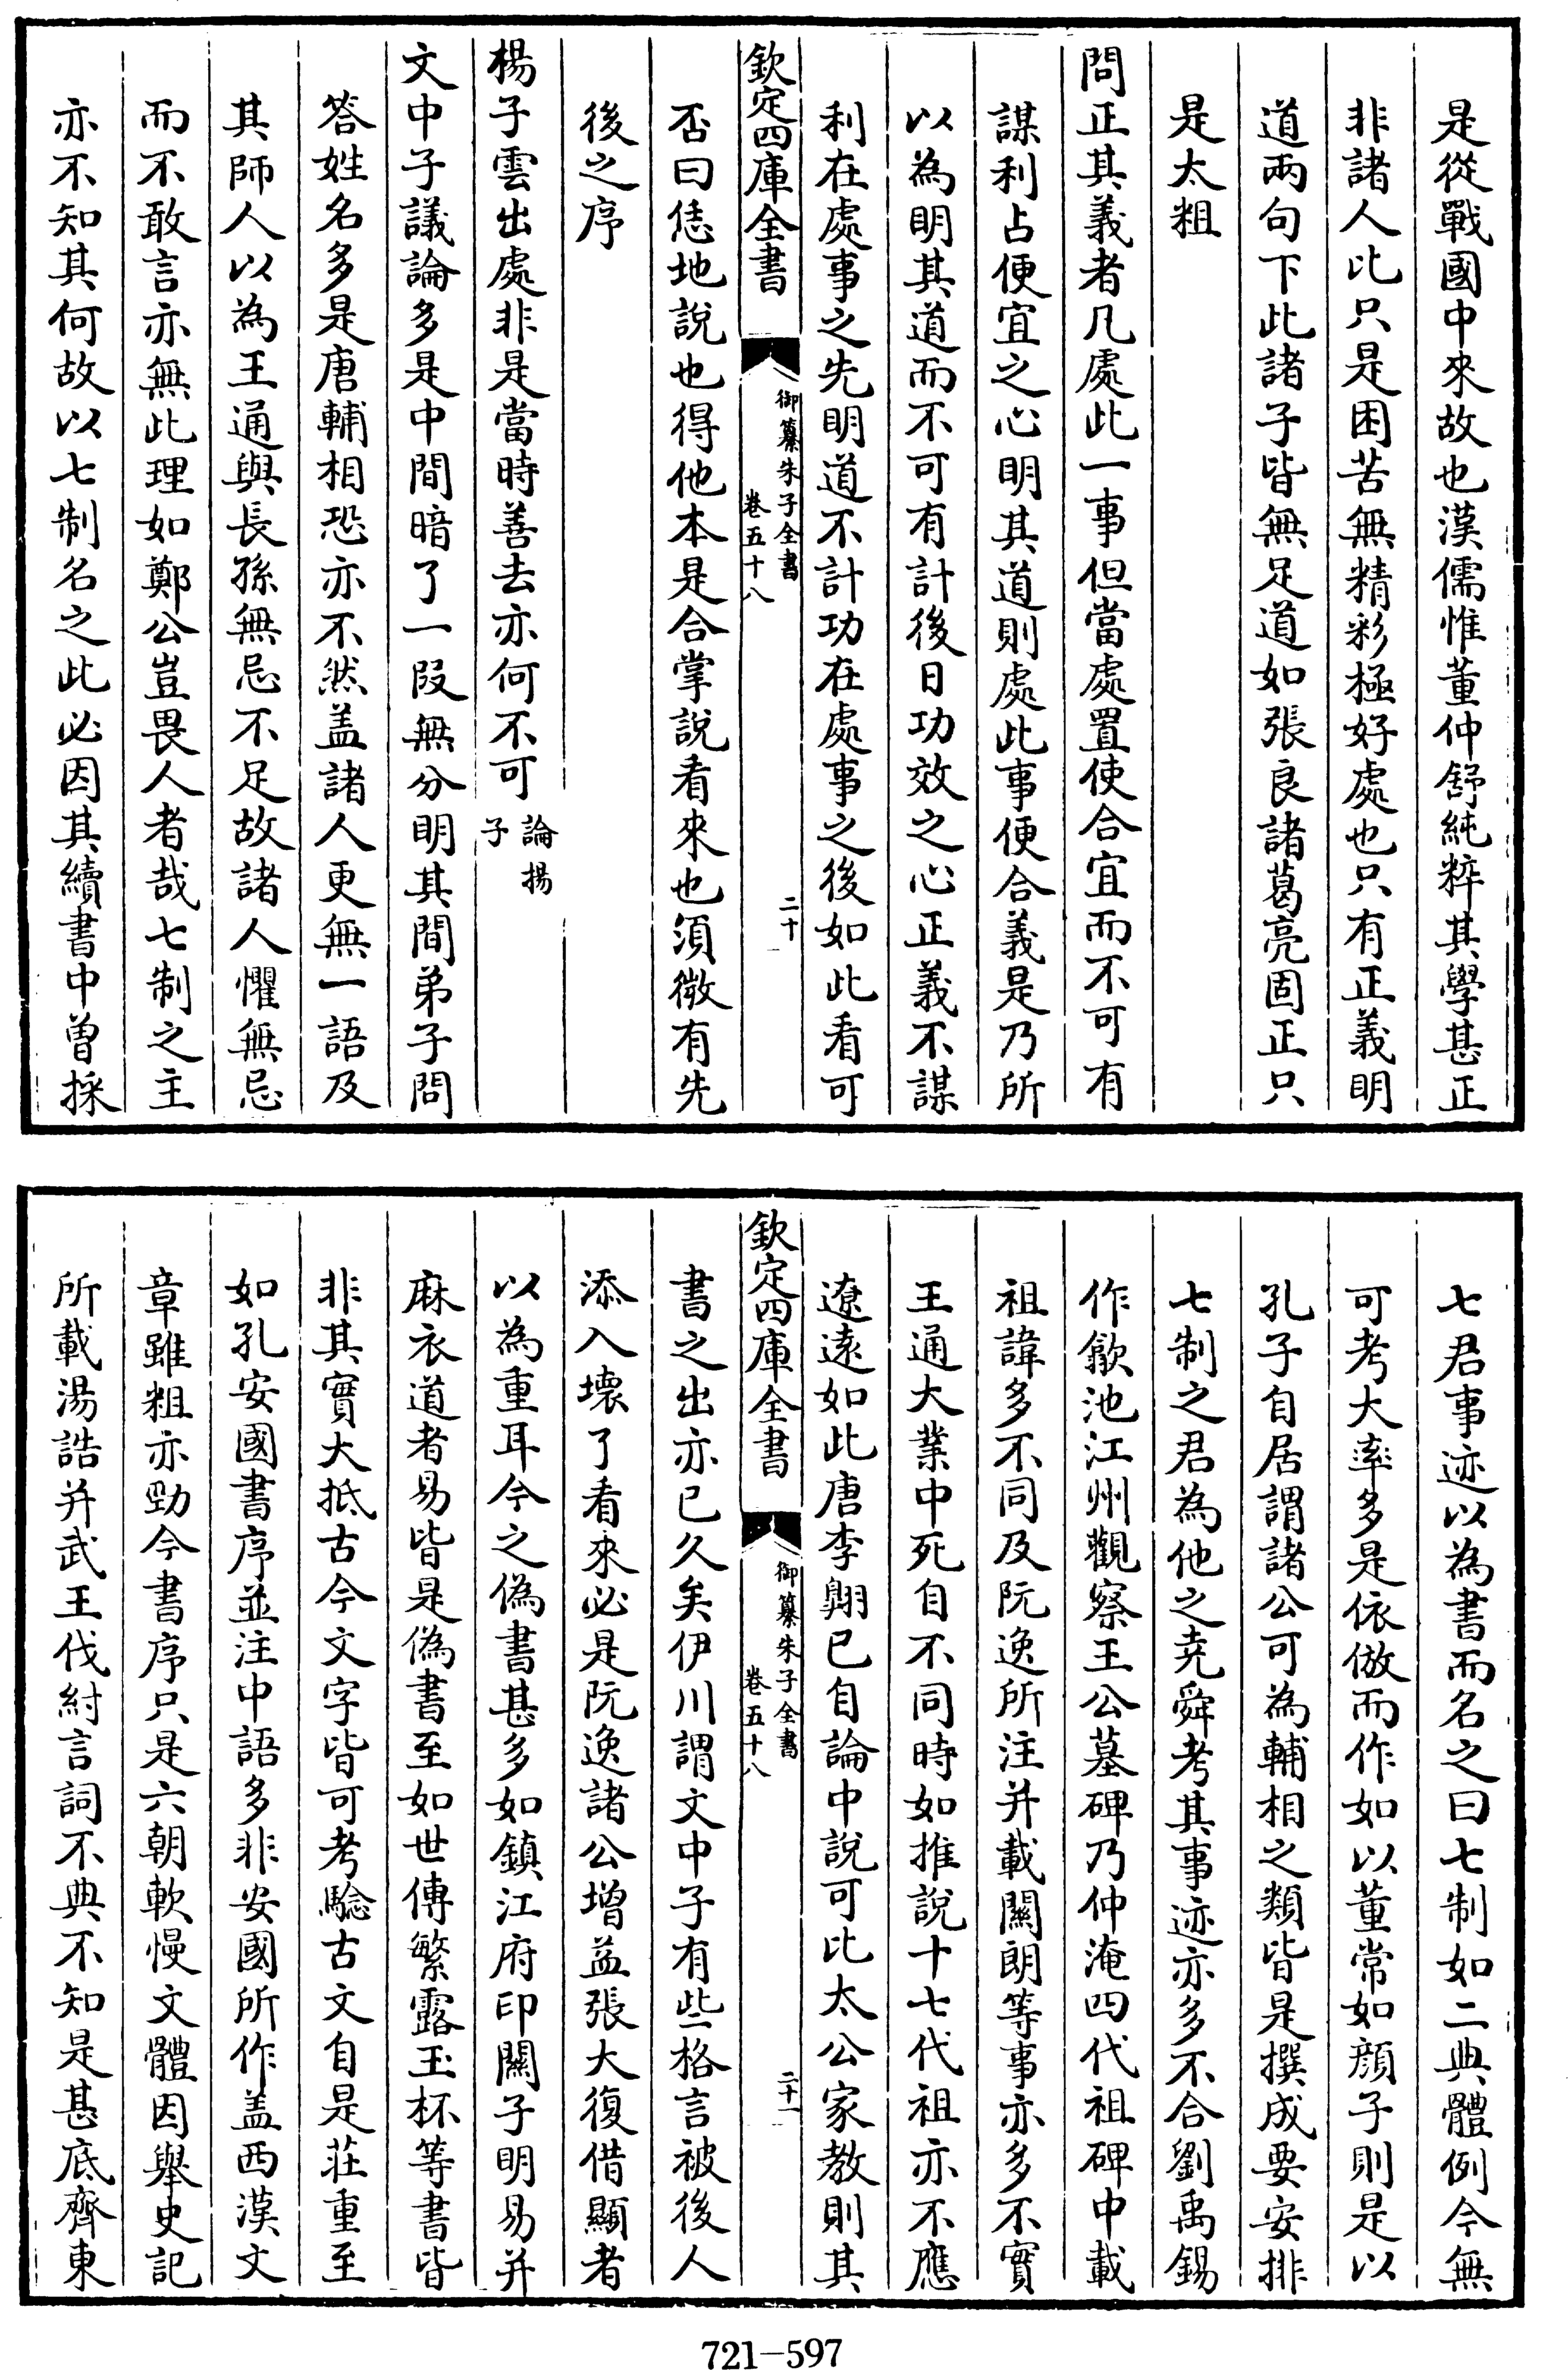 是從戰國中來故也漢儒惟董仲舒純粹其學甚正
非諸人比只是困苦無精彩極好處也只有正義明
道兩句下此諸子皆無足道如張良諸葛亮固正只
是太粗
問正其義者凡處此一事但當處置使合宜而不可有
謀利占便宜之心明其道則處此事便合義是乃所
以為明其道而不可有計後日功效之心正義不謀
利在處事之先明道不計功在處事之後如此看可
欽定四庫全書
御纂朱子全書
卷五十八
二十
否曰恁地說也得他本是合掌說看來也須微有先
後之序
楊子雲出處非是當時善去亦何不可論揚子
文中子議論多是中間暗了一段無分明其間弟子問
答姓名多是唐輔相恐亦不然盖諸人更無一語及
其師人以為王通與長孫無忌不足故諸人懼無忌
而不敢言亦無此理如鄭公豈畏人者哉七制之主
亦不知其何故以七制名之此必因其續書中曾採
七君事迹以為書而名之曰七制如二典體例今無
可考大率多是依倣而作如以董常如顔子則是以
孔子自居謂諸公可為輔相之類皆是撰成要安排
七制之君為他之尭舜考其事迹亦多不合劉禹錫
作歙池江州觀察王公墓碑乃仲淹四代祖碑中載
祖諱多不同及阮逸所注并載關朗等事亦多不實
王通大業中死自不同時如推說十七代祖亦不應
遼遠如此唐李翺已自論中說可比太公家教則其
欽定四庫全書
御纂朱子全書
卷五十八
二十一
書之出亦已久矣伊川謂文中子有些格言被後人
添入壞了看來必是阮逸諸公增益張大復借顯者
以為重耳今之偽書甚多如鎮江府印關子明易并
麻衣道者易皆是偽書至如世傳繁露玉杯等書皆
非其實大抵古今文字皆可考驗古文自是莊重至
如孔安國書序並注中語多非安國所作盖西漢文
章雖粗亦勁今書序只是六朝軟慢文體因舉史記
所載湯誥并武王伐紂言詞不典不知是甚底齊東
721—597